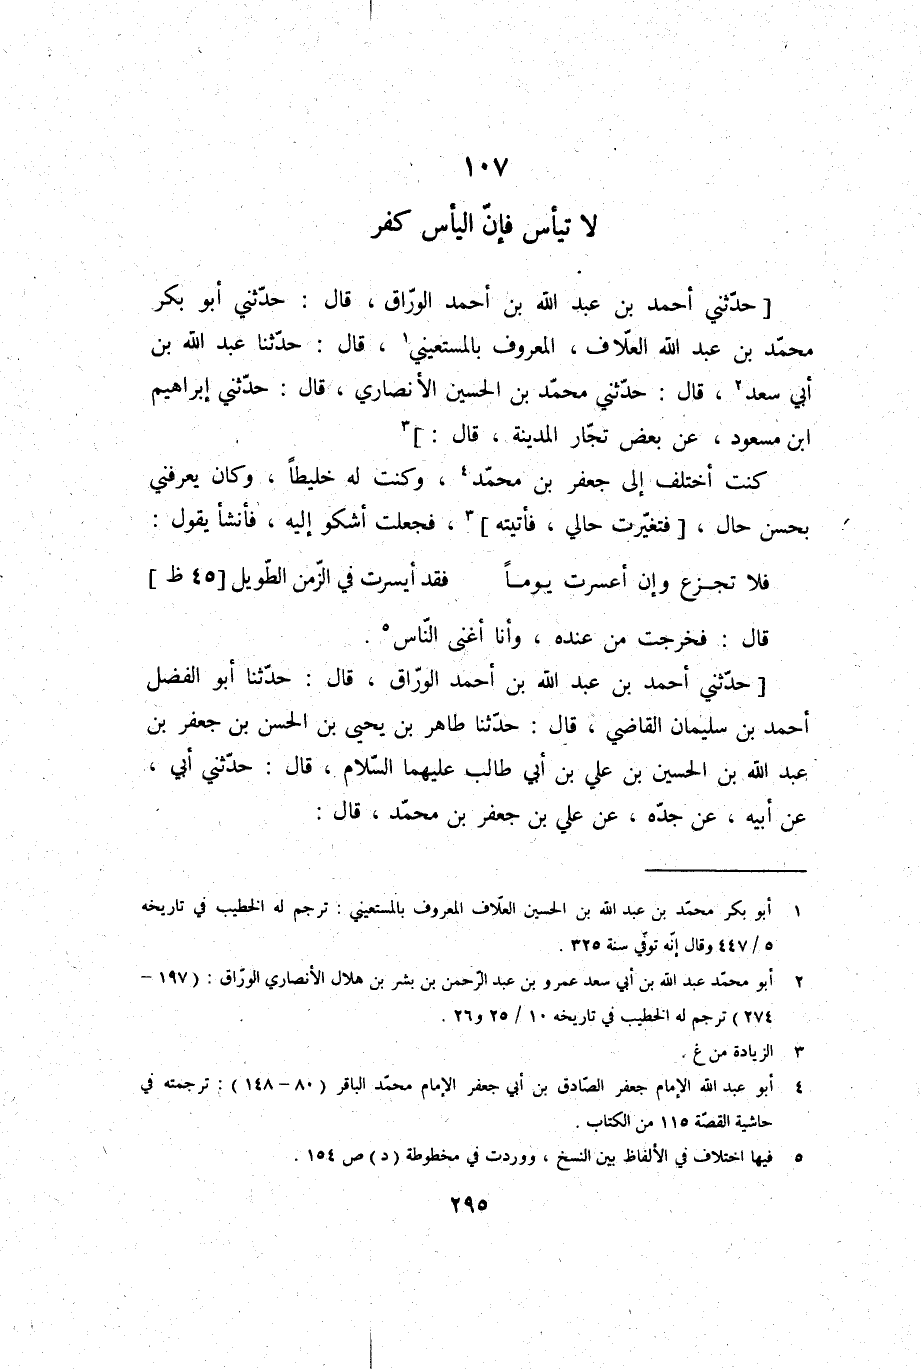 ١٠٧
لا تيأس فإنّ اليأس كفر
[ حدّثني أحمد بن عبد الله بن أحمد الورّاق ، قال : حدّثني أبو بكر
محمّد بن عبد الله العلّاف ، المعروف بالمستعيني١ ، قال : حدّثنا عبد الله بن
أبي سعد٢ ، قال : حدّثني محمّد بن الحسين الأنصاري ، قال : حدّثني إبراهيم
ابن مسعود ، عن بعض تجّار المدينة ، قال : ]٣
كنت أختلف إلى جعفر بن محمّد٤ ، وكنت له خليطاً ، وكان يعرفني
بحسن حال ، [ فتغيّرت حالي ، فأتيته ]٣ ، فجعلت أشكو إليه ، فأنشأ يقول :
فلا تجـزع وإن أعسرت يـومـاً فقد أيسرت في الزّمن الطّويل [ ٤٥ ظ ]
قال : فخرجت من عنده ، وأنا أغنى النّاس٥ .
[ حدّثني أحمد بن عبد الله بن أحمد الورّاق ، قال : حدّثنا أبو الفضل
أحمد بن سليمان القاضي ، قال : حدّثنا طاهر بن يحيى بن الحسن بن جعفر بن
عبد الله بن الحسين بن علي بن أبي طالب عليهما السّلام ، قال : حدّثني أبي ،
عن أبيه ، عن جدّه ، عن علي بن جعفر بن محمّد ، قال :
١ أبو بكر محمّد بن عبد الله بن الحسين العلّاف المعروف بالمستعيني : ترجم له الخطيب في تاريخه
٥ / ٤٤٧ وقال إنّه توفّي سنة ٣٢٥ .
٢ أبو محمّد عبد الله بن أبي سعد عمرو بن عبد الرّحمن بن بشر بن هلال الأنصاري الورّاق : ( ١٩٧ –
٢٧٤ ) ترجم له الخطيب في تاريخه ١٠ / ٢٥ و٢٦ .
٣ الزيادة من غ .
٤ أبو عبد الله الإمام جعفر الصّادق بن أبي جعفر الإمام محمّد الباقر ( ٨٠ – ١٤٨ ) : ترجمته في
حاشية القصّة ١١٥ من الكتاب .
٥ فيها اختلاف في الألفاظ بين النسخ ، ووردت في مخطوطة ( د ) ص ١٥٤ .
٢٩٥